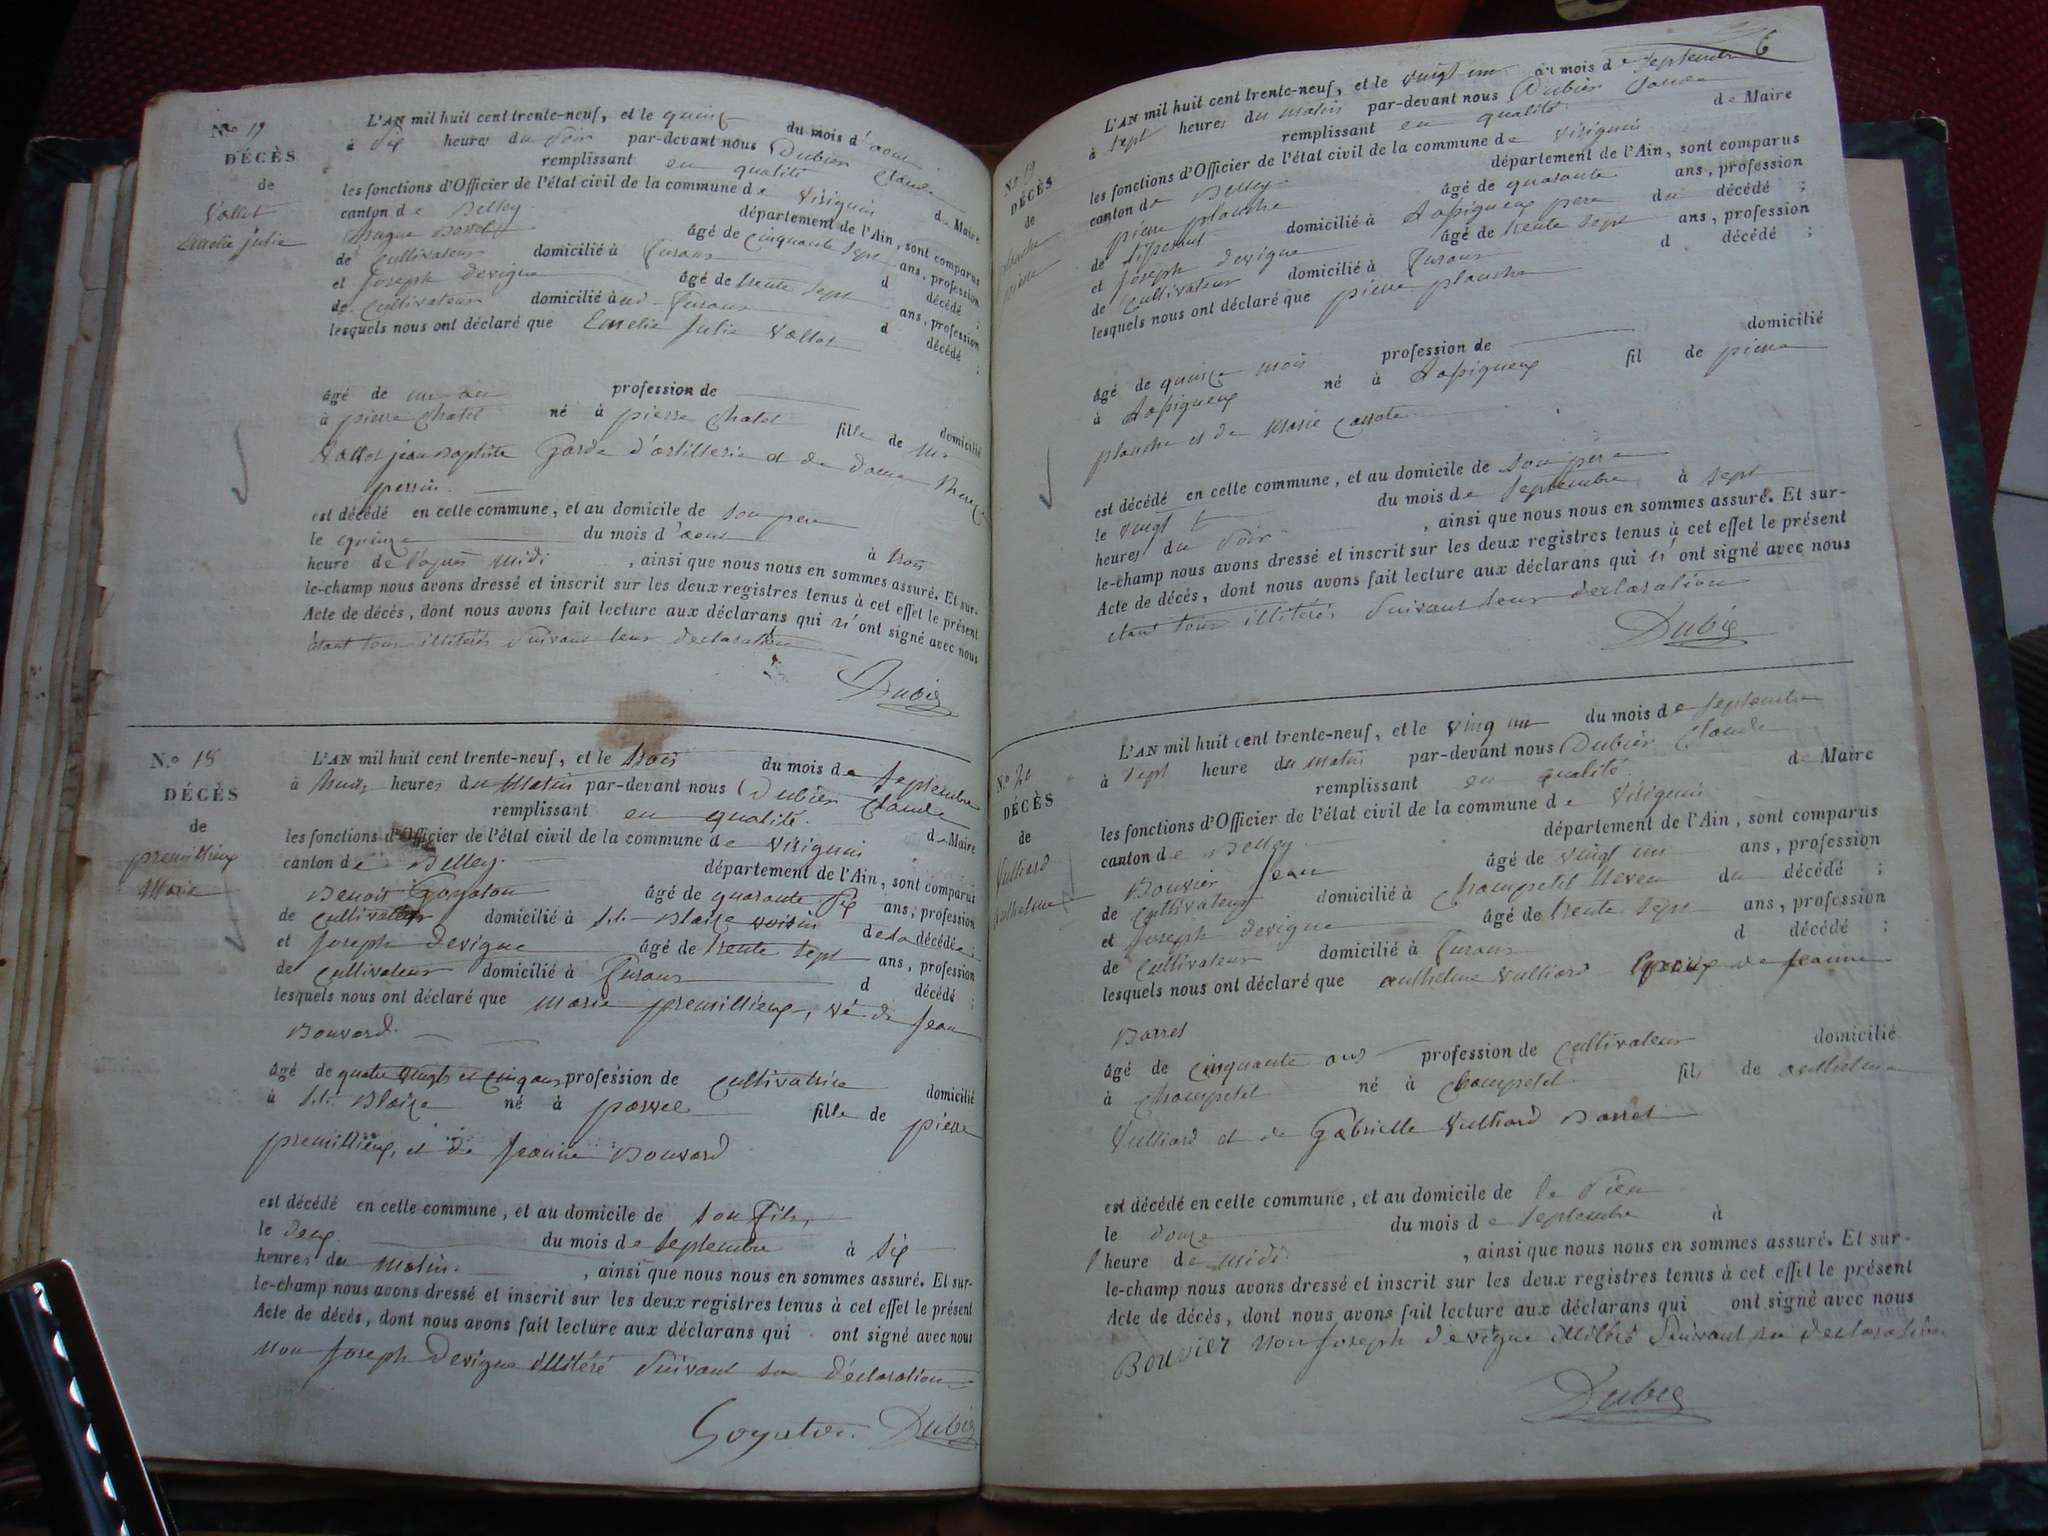 N.o 17
DÉCÈS
de
Vallet
Emelie julie
L'AN mil huit cent trente-neuf, et le quinze du mois d'aout
à Six heures du Soir par-devant nous Dubier Claude
remplissant en qualité de Maire
les fonctions d'Officier de l'état civil de la commune de Virignin
canton de Belley département de l'Ain, sont comparus
âgé de cinquante Sept ans, profession
de Cultivateur domicilié à furans d décédé ;
et Joseph devigne âgé de trente Sept ans, profession
de Cultivateur domicilié à furans d décédé ;
lesquels nous ont déclaré que Emelie Julie Vallet
âgé de un an profession de domicilié
à pierre Chatel né à pierre Chatel fille de
Vallet jean Baptiste Garde d'artillerie et de dame
perrin
est décédé en celle commune, et au domicile de Son pere
le quinze du mois d'aout à trois
heure de l'apres midi, ainsi que nous nous en sommes assuré. Et sur-
le-champ nous avons dressé et inscrit sur les deux registres tenus à cet effet le présent
Acte de décès, dont nous avons fait lecture aux déclarans qui n'ont signé avec nous
étant tous illitérés Suivant leur declaration
Dubier
N.o 18
DÉCÈS
de
premillieux
Marie
L'AN mil huit cent trente-neuf, et le trois du mois de Septembre
à heures du Matin par-devant nous Dubier Claude
remplissant en qualité de Maire
les fonctions d'Officier de l'état civil de la commune de Virignin
canton de Belley département de l'Ain, sont comparus
Benoit Goyaton âgé de quarante Six ans, profession
de Cultivateur domicilié à St. Blaize voisin de la décédée ;
et Joseph devigne âgé de trente Sept ans, profession
de Cultivateur domicilié à furans d décédé ;
lesquels nous ont déclaré que Marie premillieux, Ve de Jean
Bouvard
âgé de quatre vingts et cinq ans profession de Cultivatrice domicilié
à St. Blaize né à fille de pierre
premillieux, et de Jeanne Bouvard
est décédé en celle commune, et au domicile de Son fils,
le deux du mois de Septembre à Six
heures du Matin, ainsi que nous nous en sommes assuré. Et sur-
le-champ nous avons dressé et inscrit sur les deux registres tenus à cet effet le présent
Acte de décès, dont nous avons fait lecture aux déclarans qui ont signé avec nous
Non Joseph devigne illitéré Suivant Sa déclaration
Goyaton Dubier
6
N.o 19
DÉCÈS
de
planche
pierre
L'AN mil huit cent trente-neuf, et le vingt un du mois de Septembre
à Sept heures du Matin par-devant nous Dubier Claude
remplissant en qualité de Maire
les fonctions d'Officier de l'état civil de la commune de Virignin
canton de Belley département de l'Ain, sont comparus
pierre planche âgé de quarante ans, profession
de domicilié à pere du décédé ;
et Joseph devigne âgé de trente Sept ans, profession
de Cultivateur domicilié à furans d décédé ;
lesquels nous ont déclaré que pierre planche
âgé de quinze mois profession de domicilié
à né à fil de pierre
planche et de Marie
est décédé en celle commune, et au domicile de Son père
le vingt du mois de Septembre à Sept
heures du Soir, ainsi que nous nous en sommes assuré. Et sur-
le-champ nous avons dressé et inscrit sur les deux registres tenus à cet effet le présent
Acte de décès, dont nous avons fait lecture aux déclarans qui n'ont signé avec nous
étant tous illitérés Suivant leur declaration
Dubier
N.o 20
DÉCÈS
de
Vulliard
Anthelme
L'AN mil huit cent trente-neuf, et le ving un du mois de Septembre
à Sept heure du matin par-devant nous Dubier Claude
remplissant en qualité de Maire
les fonctions d'Officier de l'état civil de la commune de Virignin
canton de Belley département de l'Ain, sont comparus
Bouvier Jean âgé de vingt un ans, profession
de Cultivateur domicilié à Champetel Neveu du décédé ;
et Joseph devigne âgé de trente Sept ans, profession
de Cultivateur domicilié à furans d décédé ;
lesquels nous ont déclaré que anthelme Vulliard Epoux de Jeanne
Barret
âgé de cinquante ans profession de Cultivateur domicilié
à Champetel né à Champetel fils de anthelme
Vulliard et de Gabrielle Vulliard Barret
est décédé en celle commune, et au domicile de le Sien
le douze du mois de Septembre à
heure de midi, ainsi que nous nous en sommes assuré. Et sur-
le-champ nous avons dressé et inscrit sur les deux registres tenus à cet effet le présent
Acte de décès, dont nous avons fait lecture aux déclarans qui ont signé avec nous
Bouvier Non Joseph devigne illitéré Suivant Sa declaration
Dubier